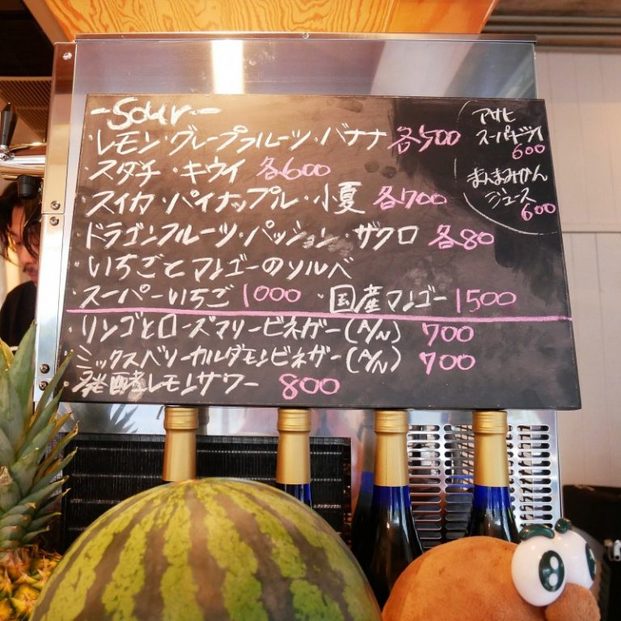 -Sour-
・レモン・グレープフルーツ・バナナ 各500
・スダチ・キウイ 各600
・スイカ・パイナップル・小夏 各700
・ドラゴンフルーツ・パッション・ザクロ 各80
・いちごとマンゴーのソルベ
・スーパーいちご 1000 ・国産マンゴー 1500
・リンゴとローズマリービネガー(A/N) 700
・ミックスベリーカルダモンビネガー(A/N) 700
・発酵レモンサワー 800
アサヒ
スーパードライ
600
まんまみかん
ジュース
600